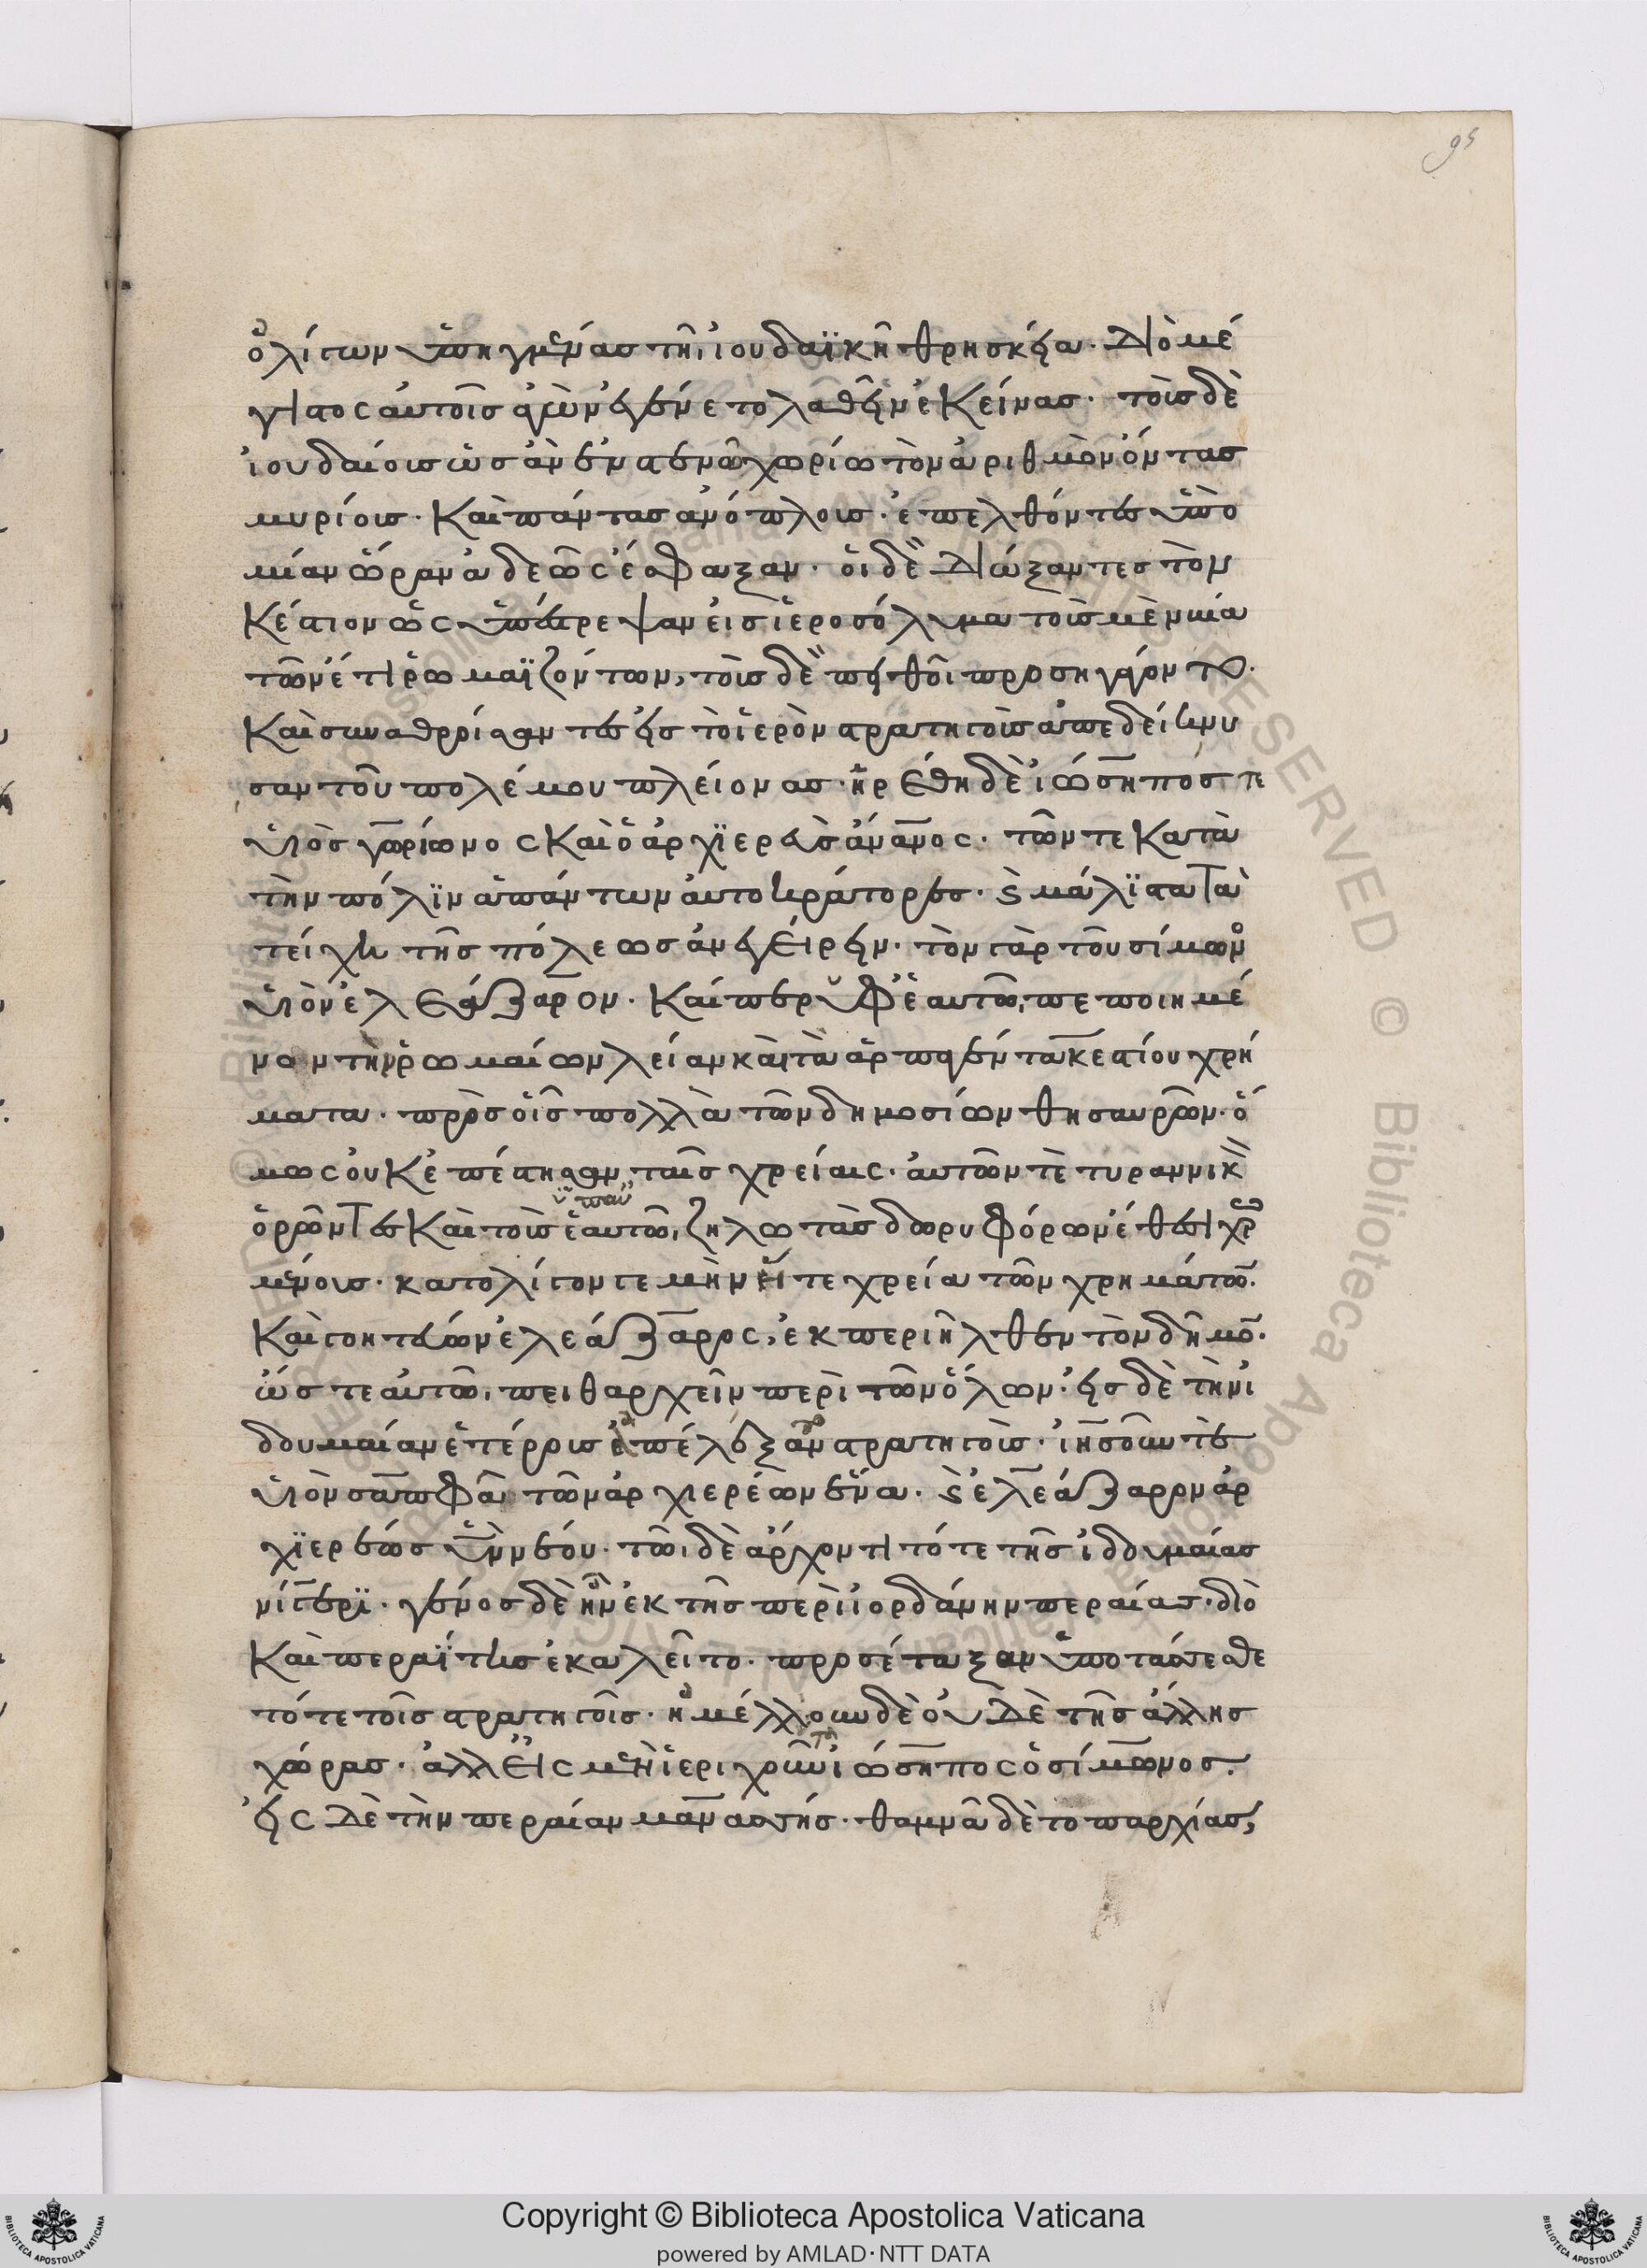 ὀλίγων ὑπηγμένας τῆι ἰουδαϊκῆ θρησκείαι· διὸ μέ
γιστος αὐτοῖς ἀγὼν ἐγένετο λαθεῖν ἐκείνας· τοὺς δὲ
ἰουδαίους ὡς ἂν ἐν στενῶι χωρίω τὸν ἀριθμὸν ὄντας
μυρίους· καὶ πάντας ἀνόπλους· ἐπελθόντες ὑπὸ
μίαν ὥραν ἀδεῶς ἔσφαξαν· οἱ δὲ διώξαντες τὸν
κέστιον ὡς ὑπέστρεψαν εἰς ἱεροσόλυμα τοὺς μὲν μία
τῶν ἔτι ῥωμαϊζόντων, τοὺς δὲ πειθοῖ προσηγάγοντο·
καὶ συναθροίσαντες εἰς τὸ ἱερὸν στρατηγοὺς ἀπεδείκνυ
σαν τοῦ πολέμου πλείονας· ἡρέθη δὲ ἰώσηπός τε
υἱὸς γωρίωνος καὶ ὁ ἀρχϊερεὺς ἄνανος· τῶν τε κατὰ
τὴν πόλϊν ἁπάντων αὐτοκράτορες· ϗ μάλϊστα τὰ
τείχη τῆς πόλεως ἀνεγείρειν· τὸν γὰρ τοῦ σίμωνο
υἱὸν ἐλεάζαρον· καίπερ ὑφ' ἑαυτῶι πεποιημέ
νον τὴν ῥωμαίων λείαν καὶ τὰ ἁρπαγέντα κεστίου χρή
ματα· πρὸς οἷς πολλὰ τῶν δημοσίων θησαυρῶν· ὅ
μως οὐκ ἐπέστησαν ταῖς χρείαις· αὐτόν τε τυραννικὸν
ὁρῶντες καὶ τοὺς ὑπ' αὐτῶι ζηλωτὰς δορυφόρων ἔθεσι χρω
μένους· κατολίγον γε μὴν ἥ τε χρεία τῶν χρημάτων·
καὶ γοητεύων ἐλεάζαρος, ἐκπεριῆλθεν τὸν δῆμον·
ὥστε αὐτῶι πειθαρχεῖν περὶ τῶν ὅλων· εἰς δὲ τὴν ἰ
δουμαίαν ἑτέρους ἐπέλεξαν στρατηγοὺς· ἰησοῦν τε
υἱὸν σαπφᾶ τῶν ἀρχιερέων ἕνα· ϗ ἐλεάζαρον ἀρ
χϊερέως υἱὸν νέου· τῶι δὲ ἄρχοντι τότε τῆς ἰδουμαίας
νίγερϊ· γένος δὲ ἦν ἐκ τῆς περὶ ἰορδάνην περαίας· διὸ
καὶ περαΐτης ἐκαλεῖτο· προσέταξαν ὑποτάσσεσθαι
τότε τοῖς στρατηγοῖς· ἠμέλλουν δὲ οὐδὲ τῆς ἄλλης
χώρας· ἀλλ' εἰς μὲν ἱεριχοῦντα ἰώσηπος ὁ σίμωνος·
εἰς δὲ τὴν περαίαν μανασσῆς· θαμνᾶ δὲ τοπαρχίας,
Copyright © Biblioteca Apostolica Vaticana
powered by AMLAD·NTT DATA